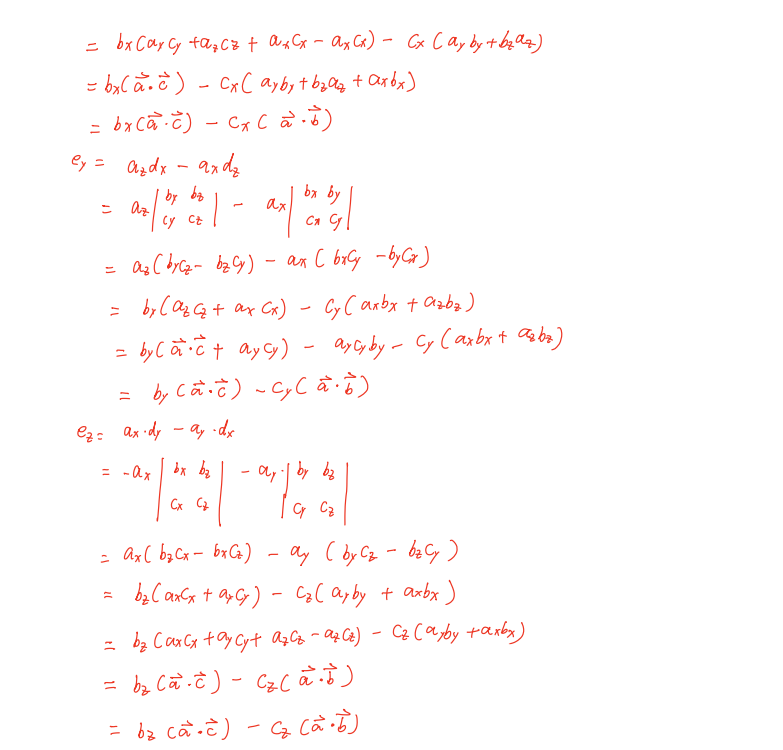 = bx(ay cy + az cz + ax cx − ax cx) − cx (ay by + bz az)
= bx(a⃗·c⃗) − cx( ay by + bz az + ax bx)
= bx(a⃗·c⃗) − cx( a⃗·b⃗)
ey = az dx − ax dz
= az |by bz; cy cz| − ax |bx by; cx cy|
= az(by cz − bz cy) − ax ( bx cy − by cx)
= by(az cz + ax cx) − cy(ax bx + az bz)
= by( a⃗·c⃗ + ay cy) − ay cy by − cy (ax bx + az bz)
= by (a⃗·c⃗) − cy( a⃗·b⃗)
ez = ax·dy − ay·dx
= −ax |bx bz; cx cz| − ay·|by bz; cy cz|
= ax( bz cx − bx cz) − ay ( by cz − bz cy )
= bz(ax cx + ay cy) − cz( ay by + ax bx )
= bz (ax cx + ay cy + az cz − az cz) − cz (ay by + ax bx)
= bz (a⃗·c⃗) − cz( a⃗·b⃗)
= bz (a⃗·c⃗) − cz (a⃗·b⃗)